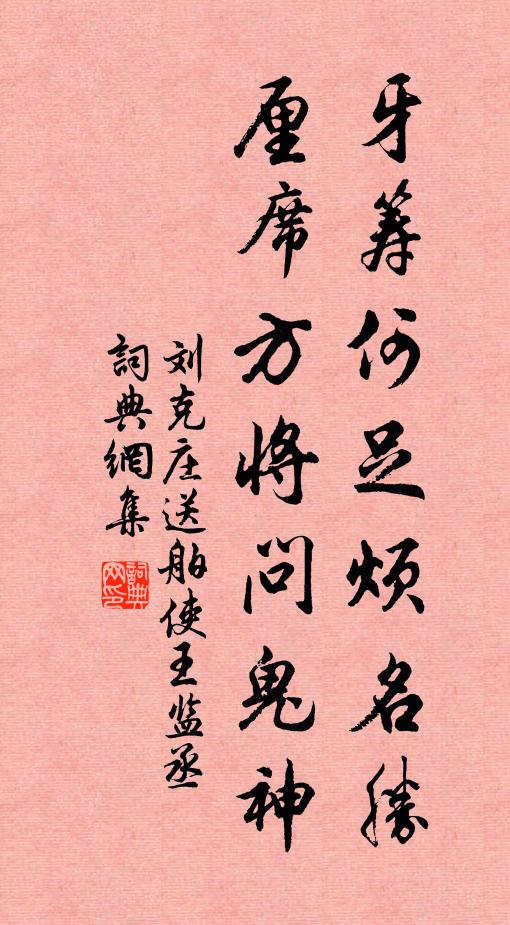 牙筹何足烦名勝
厘席方将问鬼神
刘克庄送舶使王监丞
詞典網集
詞典网印